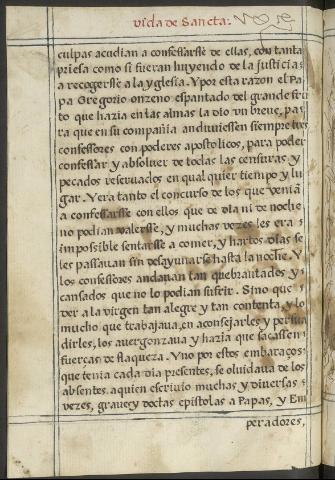 vida de Sancta.
culpas acudian a confessarsse de ellas, con tanta
priesa como si fueran huyendo de la justicia
a recogersse a la yglesia. Y por esta razon el Pa
pa Gregorio onzeno espantado del grande fru
to que hazia en las almas la dio vn breue, pa
ra que en su compañia anduuiessen siempre tres
confessores con poderes apostolicos, para poder
confessar y absoluer de todas las censuras y
pecados reseruados en qual quier tiempo y lu
gar. Y era tanto el concurso de los que venian
a confessarsse con ellos que de dia ni de noche
no podian valersse, y muchas vezes les era
impossible sentarsse a comer, y hartos dias se
les passauan sin desayunarse hasta la noche. Y
los confessores andauan tan quebrantados y
cansados que no lo podian sufrir. Sino que
ver a la virgen tan alegre y tan contenta, y lo
mucho que trabajaua, en aconsejarles y persua
dirles, los auergonzaua y hazia que sacassen
fuercas de flaqueza. Y no por estos embaraços
que tenia cada dia presentes, se oluidaua de los
absentes, a quien escriuio muchas y diuersas
vezes, graues y doctas epistolas a Papas, y Em
peradores,